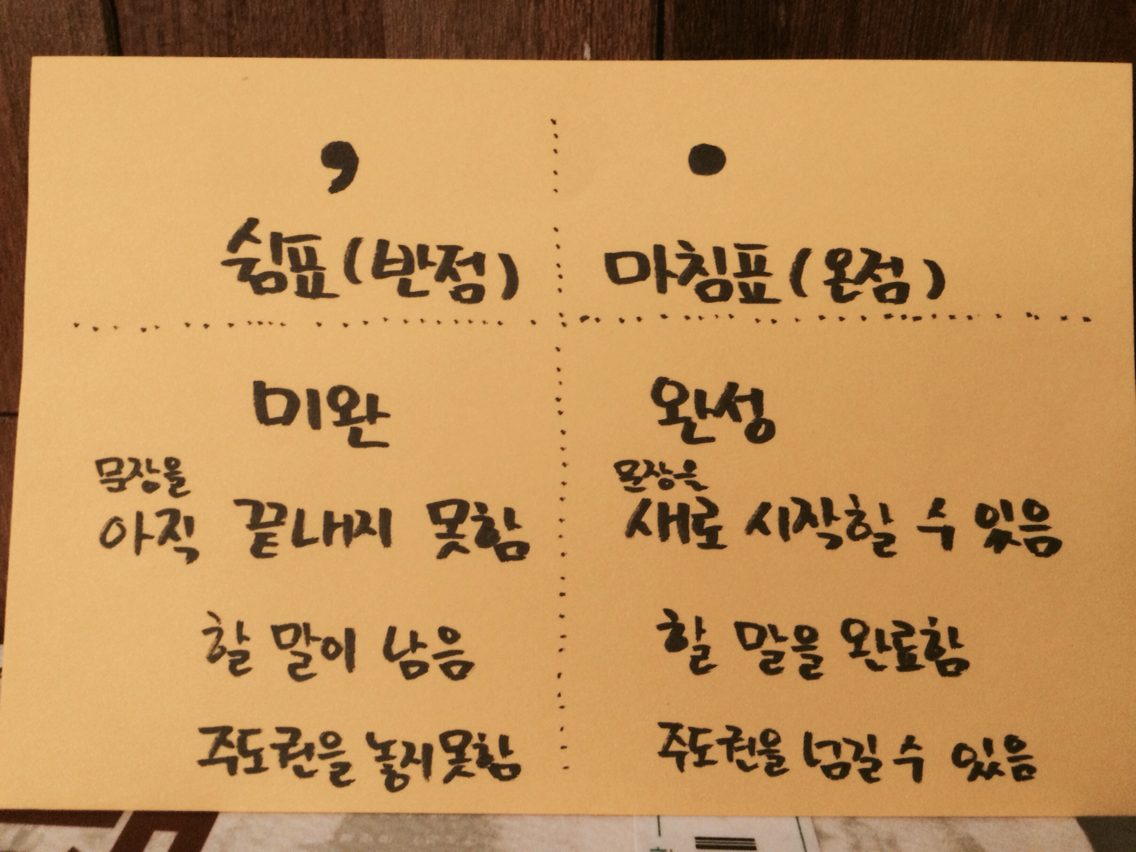 , .
쉼표(반점) 마침표(온점)
미완 완성
문장을 문장을
아직 끝내지 못함 새로 시작할 수 있음
할 말이 남음 할 말을 완료함
주도권을 놓지못함 주도권을 넘길 수 있음